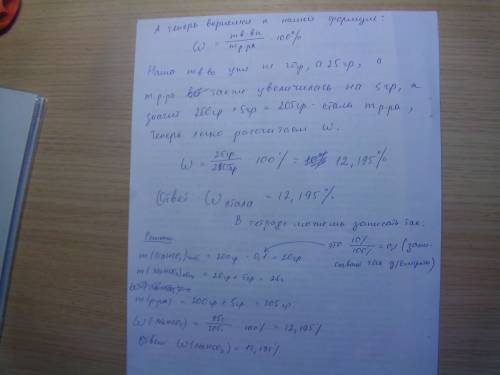 А теперь вернемся к нашей формуле:
ω = m в-ва / m р-ра · 100%
Наша m в-ва уже не 20гр, а 25гр, а
m р-ра также увеличилась на 5гр, а
значит 200гр + 5гр = 205гр - стала m р-ра,
теперь легко рассчитаем ω.
ω = 25гр / 205гр · 100% = 12,195%
Ответ ω стала = 12,195%.
В тетрадь можешь записать так:
Решение
m(NaHCO3) = 200гр · 0,1 = 20гр.
это 10% / 100% = 0,1 (запи-
m(NaHCO3) = 20гр + 5гр = 25г
m(р-ра) = 200гр + 5гр = 205гр.
ω(NaHCO3) = 25г / 205г · 100% = 12,195%
Ответ ω(NaHCO3) = 12,195%